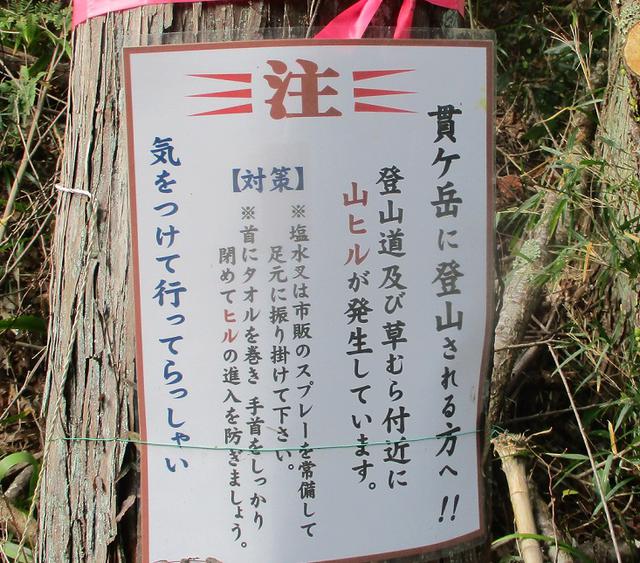 注
貫ケ岳に登山される方へ!!
登山道及び草むら付近に
山ヒルが発生しています。
【対策】
※塩水又は市販のスプレーを常備して
足元に振り掛けて下さい。
※首にタオルを巻き 手首をしっかり
閉めてヒルの進入を防ぎましょう。
気をつけて行ってらっしゃい